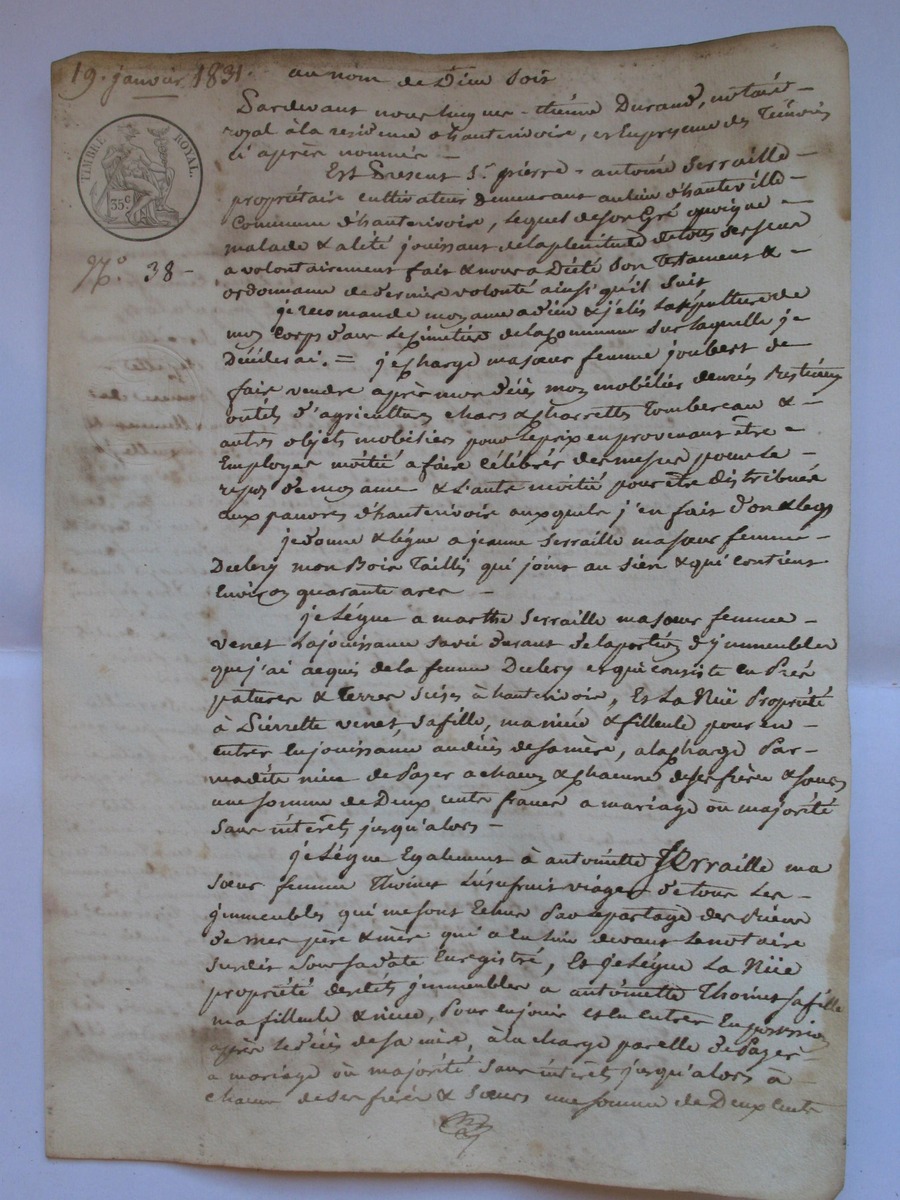 19. janvier 1831.
au nom de Dieu soit
Pardevant nous hugues-étiéne Durand, notaire
royal à la residence d'hauterivoire, et en presence des Témoins
ci après nommés -
TIMBRE ROYAL.
35c
Est Present Sr. pierre-antoine Serraille -
propriétaire cultivateur demeurant au lieu d'hauteville -
Commune d'hauterivoire, lequel de son Gré quoique -
malade & alité jouissant de la plenitude de tous ses sens
No. 38 -
a volontairement fait & nous a Dicté son Testament & -
ordonnance de dernière volonté ainsi qu'il suit
je recomande mon ame a dieu & j'élis la sépulture de
mon corps dans le Cimetière de la Commune sur laquelle je
Décéderai. = je charge ma sœur femme joubert de
faire vendre après mon décès mon mobilier denrées Bestiaux
outils d'agriculture chars & charrettes Tombereau & -
autres objets mobiliers pour le prix en provenant être -
Employer moitié a faire célébrér des messes pour le -
repos de mon ame & l'autre moitié pour être distribuée
aux pauvres d'hauterivoire auxquels j'en fait don & legs
je donne & lègue a jeanne Serraille ma sœur femme -
Dubery mon Bois Taillis qui joint au sien & qui contient
Environ quarante ares -
je Lègue a marthe Serraille ma sœur femme
venet la jouissance sa vie durant de la portion d'jmmeubles
que j'ai acquis de la femme Dubery et qui consiste en Prés
patures & Terres sises à hauterivoire, Et La Nüe Propriété
à Pierrette venet sa fille, ma niéce & filleule pour en -
entrer en jouissance au décès de sa mère, a la charge Par -
madite niéce de Payer a chacun & chacune de ses frères & sœurs
une somme de Deux cents francs a mariage où majorité
sans intérêts jusqu'alors -
je Lègue Egalement à antoinette Serraille ma
sœur femme Thoinet L'usufruit viager de tous Les -
jmmeubles qui me sont Echus Par le partage des Biens
de mes père & mère qui a eu lieu devant le notaire
susdit sous sa date Enregistré, Et je Lègue La Nüe
propriété desdits jmmeubles a antoinette Thoinet sa fille
ma filleule & niéce, Pour en jouir et en entrer En possession
après le décès de sa mère, à la charge par elle de Payer
a mariage où majorité sans intérêts jusqu'alors à -
chacun de ses frères & sœurs une somme de Deux cents